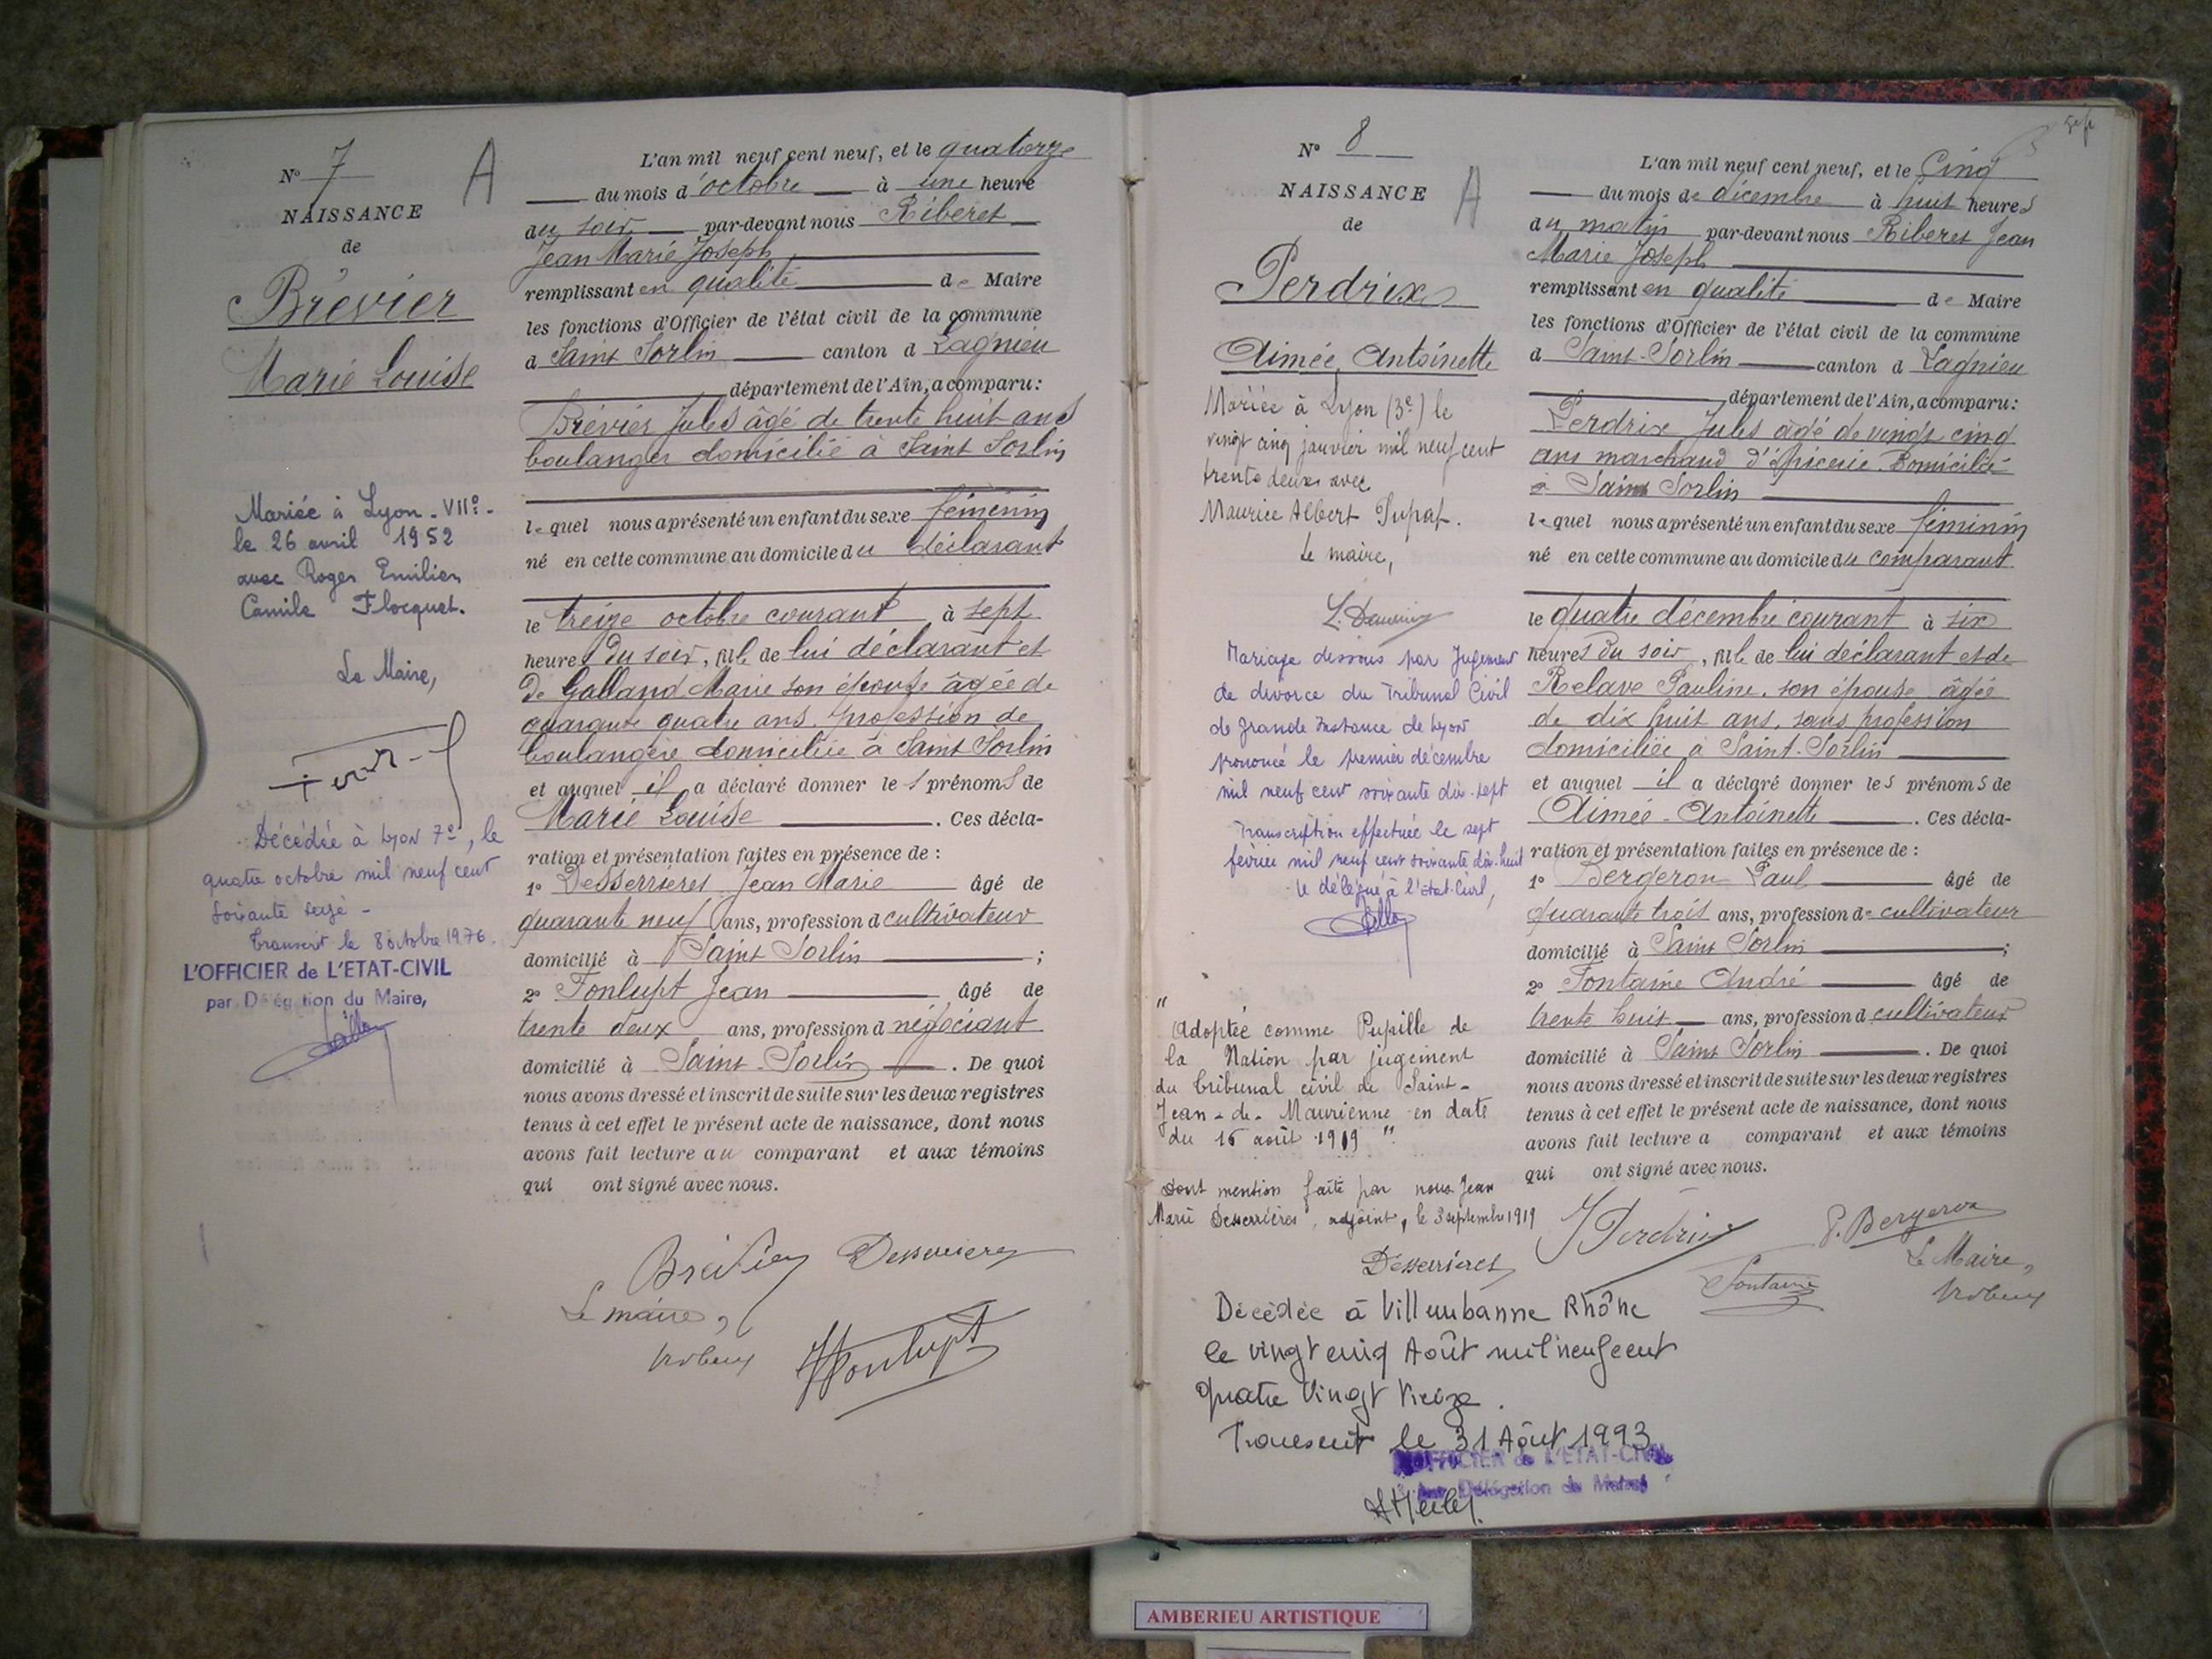 N° 7
A
NAISSANCE
de
Brévier
Marie Louise
Mariée à Lyon - VIIe -
le 26 avril 1952
avec Roger Emilien
Camile Flocquet.
Le Maire,
Décédée à Lyon 7e, le
quatre octobre mil neuf cent
soixante seize -
transcrit le 8 octobre 1976.
L'OFFICIER de L'ETAT-CIVIL
par Délégation du Maire,
L'an mil neuf cent neuf, et le quatorze
du mois d'octobre à une heure
du soir par-devant nous Riberet
Jean Marie Joseph
remplissant en qualité de Maire
les fonctions d'Officier de l'état civil de la commune
d Saint Sorlin canton d Lagnieu
département de l'Ain, a comparu:
Brévier Jules âgé de trente huit ans
boulanger domicilié à Saint Sorlin
lequel nous a présenté un enfant du sexe féminin
né en cette commune au domicile du déclarant
le treize octobre courant à sept
heure du soir, fille de lui déclarant et
de Galland Marie son épouse âgée de
quarante quatre ans, profession de
boulangère domiciliée à Saint Sorlin
et auquel il a déclaré donner les prénoms de
Marie Louise. Ces décla-
ration et présentation faites en présence de :
1° Desserrières Jean Marie âgé de
quarante neuf ans, profession d cultivateur
domicilié à Saint Sorlin ;
2° Fonlupt Jean âgé de
trente deux ans, profession d négociant
domicilié à Saint-Sorlin. De quoi
nous avons dressé et inscrit de suite sur les deux registres
tenus à cet effet le présent acte de naissance, dont nous
avons fait lecture au comparant et aux témoins
qui ont signé avec nous.
Brévier Desserrières
Le maire,
JFonlupt
N° 8
A
NAISSANCE
de
Perdrix
Aimée Antoinette
Mariée à Lyon (3e) le
vingt cinq janvier mil neuf cent
trente deux avec
Maurice Albert Dupaf.
Le maire,
Mariage dissous par Jugement
de divorce du Tribunal Civil
de grande Instance de Lyon
prononcé le premier décembre
mil neuf cent soixante dix-sept
Transcription effectuée le sept
février mil neuf cent soixante dix-huit
Le délégué à l'Etat-Civil,
"Adoptée comme Pupille de
la Nation par jugement
du tribunal civil de Saint-
Jean-de-Maurienne en date
du 16 août 1919".
Dont mention faite par nous Jean
Marie Desserrières, adjoint, le 3 septembre 1919
Desserrières
Décédée à Villeurbanne Rhône
le vingt cinq Août mil neuf cent
quatre vingt treize.
Transcrit le 31 Août 1993
L'OFFICIER de L'ETAT-CIVIL
Par Délégation du Maire
L'an mil neuf cent neuf, et le Cinq
du mois de décembre à huit heures
du matin par-devant nous Riberet Jean
Marie Joseph
remplissant en qualité de Maire
les fonctions d'Officier de l'état civil de la commune
d Saint-Sorlin canton d Lagnieu
département de l'Ain, a comparu:
Perdrix Jules âgé de vingt cinq
ans marchand d'épicerie. Domicilié
à Saint Sorlin
lequel nous a présenté un enfant du sexe féminin
né en cette commune au domicile du comparant
le quatre décembre courant à six
heures du soir, fille de lui déclarant et de
Relave Pauline, son épouse âgée
de dix huit ans, sans profession
domiciliée à Saint-Sorlin
et auquel il a déclaré donner les prénoms de
Aimée-Antoinette. Ces décla-
ration et présentation faites en présence de :
1° Bergeron Paul âgé de
quarante trois ans, profession de cultivateur
domicilié à Saint Sorlin ;
2° Fontaine André âgé de
trente huit ans, profession d cultivateur
domicilié à Saint Sorlin. De quoi
nous avons dressé et inscrit de suite sur les deux registres
tenus à cet effet le présent acte de naissance, dont nous
avons fait lecture a comparant et aux témoins
qui ont signé avec nous.
JPerdrix P. Bergeron
Fontaine Le Maire,
AMBERIEU ARTISTIQUE